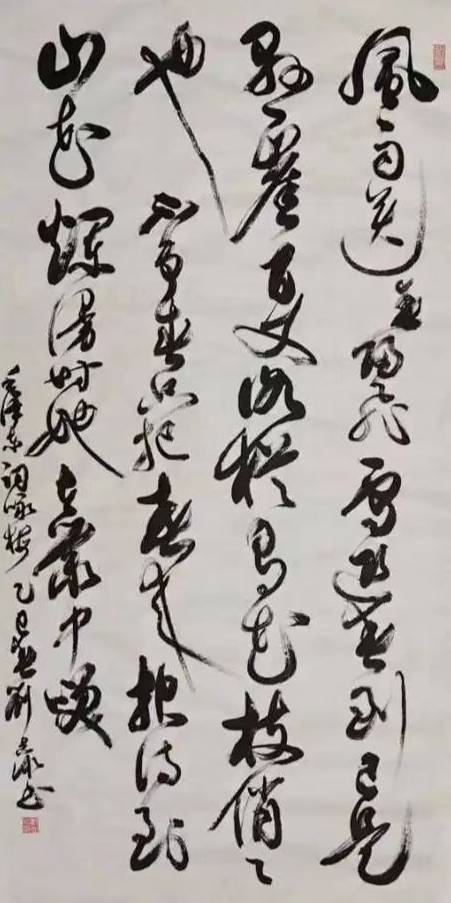 風雨送春归飛雪迎春到已是
悬崖百丈冰猶有花枝俏〻
也不争春只把春来报待到
山花爛漫時她在叢中笑
毛泽东词咏梅乙巳劉书